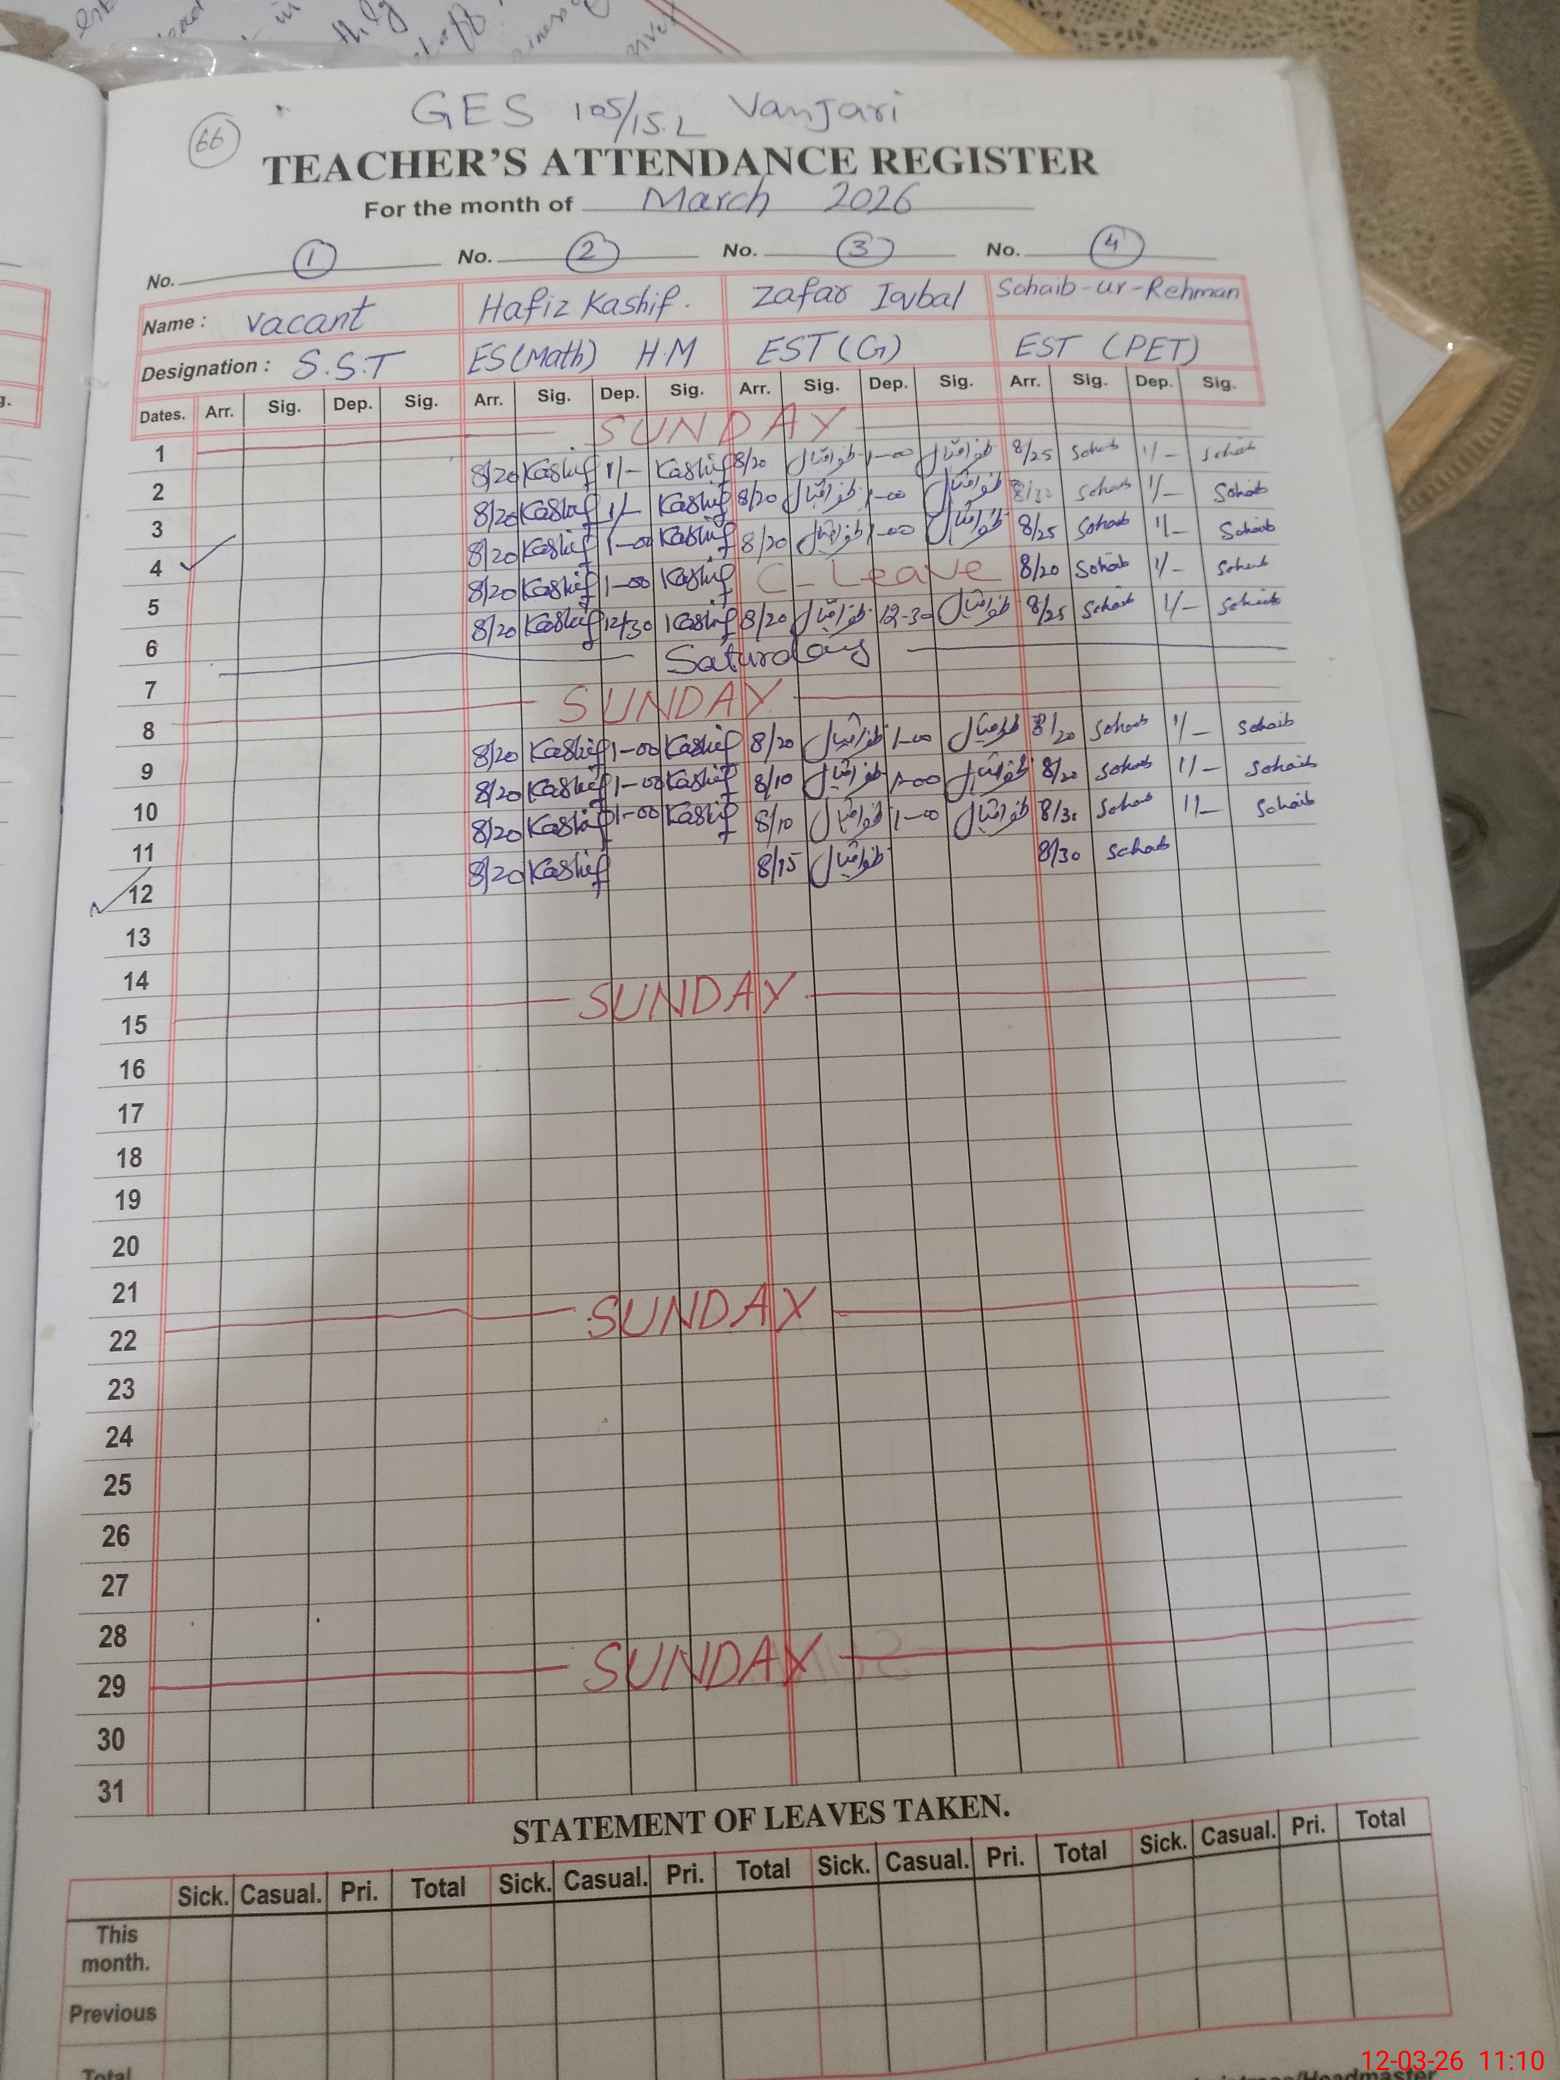 GES 105/15.L Vanjari
66
TEACHER'S ATTENDANCE REGISTER
For the month of March 2026
No. 1 No. 2 No. 3 No. 4
Name: Vacant Hafiz Kashif. Zafar Iqbal Sohaib-ur-Rehman
Designation: S.S.T ES(Math) H.M EST(G) EST (PET)
Dates. Arr. Sig. Dep. Sig. Arr. Sig. Dep. Sig. Arr. Sig. Dep. Sig. Arr. Sig. Dep. Sig.
1 SUNDAY
2 8/20 Kashif 1/- Kashif 8/20 ظفراقبال 1-00 ظفراقبال 8/25 Sohaib 1/- Sohaib
3 8/20 Kashif 1/- Kashif 8/20 ظفراقبال 1-00 ظفراقبال Sohaib 1/- Sohaib
4 8/20 Kashif 1-00 Kashif 8/20 ظفراقبال 1-00 ظفراقبال 8/25 Sohaib 1/- Sohaib
5 8/20 Kashif 1-00 Kashif C-Leave 8/20 Sohaib 1/- Sohaib
6 8/20 Kashif 12/30 Kashif 8/20 ظفراقبال 12-30 ظفراقبال 8/25 Sohaib 1/- Sohaib
7 Saturday
8 SUNDAY
9 8/20 Kashif 1-00 Kashif 8/20 ظفراقبال 1-00 ظفراقبال 8/20 Sohaib 1/- Sohaib
10 8/20 Kashif 1-00 Kashif 8/10 ظفراقبال 1-00 ظفراقبال 8/20 Sohaib 1/- Sohaib
11 8/20 Kashif 1-00 Kashif 8/10 ظفراقبال 1-00 ظفراقبال 8/30 Sohaib 1/- Sohaib
12 8/20 Kashif 8/15 ظفراقبال 8/30 Sohaib
13
14
15 SUNDAY
16
17
18
19
20
21
22 SUNDAY
23
24
25
26
27
28
29 SUNDAY
30
31
STATEMENT OF LEAVES TAKEN.
Sick. Casual. Pri. Total Sick. Casual. Pri. Total Sick. Casual. Pri. Total Sick. Casual. Pri. Total
This
month.
Previous
Total
12-03-26 11:10